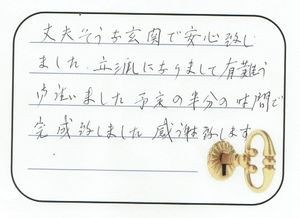 丈夫そうな玄関で安心致し
ました。立派になりまして有難う
御座いました 予定の半分の時間で
完成致しました 感謝致します